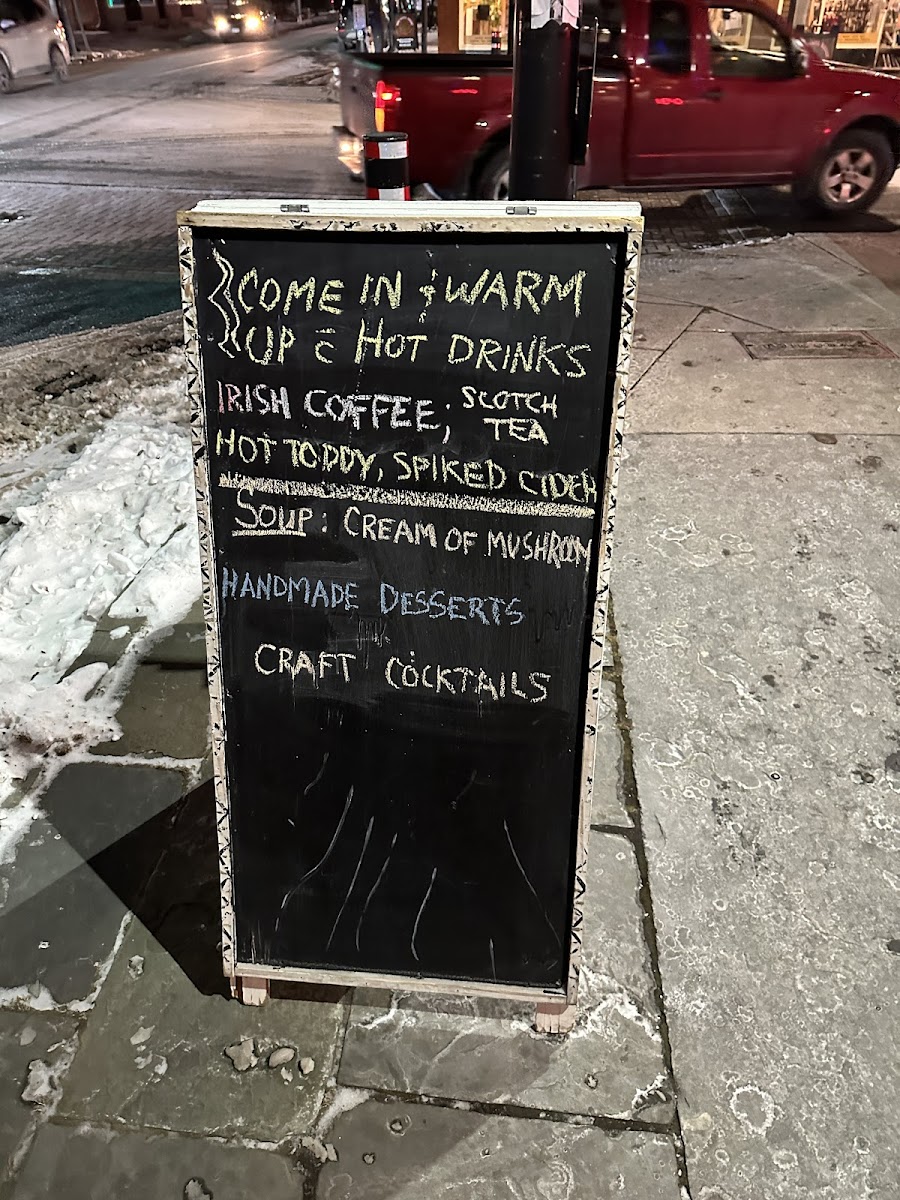 COME IN & WARM
UP c̄ HOT DRINKS
IRISH COFFEE; SCOTCH TEA
HOT TODDY, SPIKED CIDER
SOUP: CREAM OF MUSHROOM
HANDMADE DESSERTS
CRAFT COCKTAILS